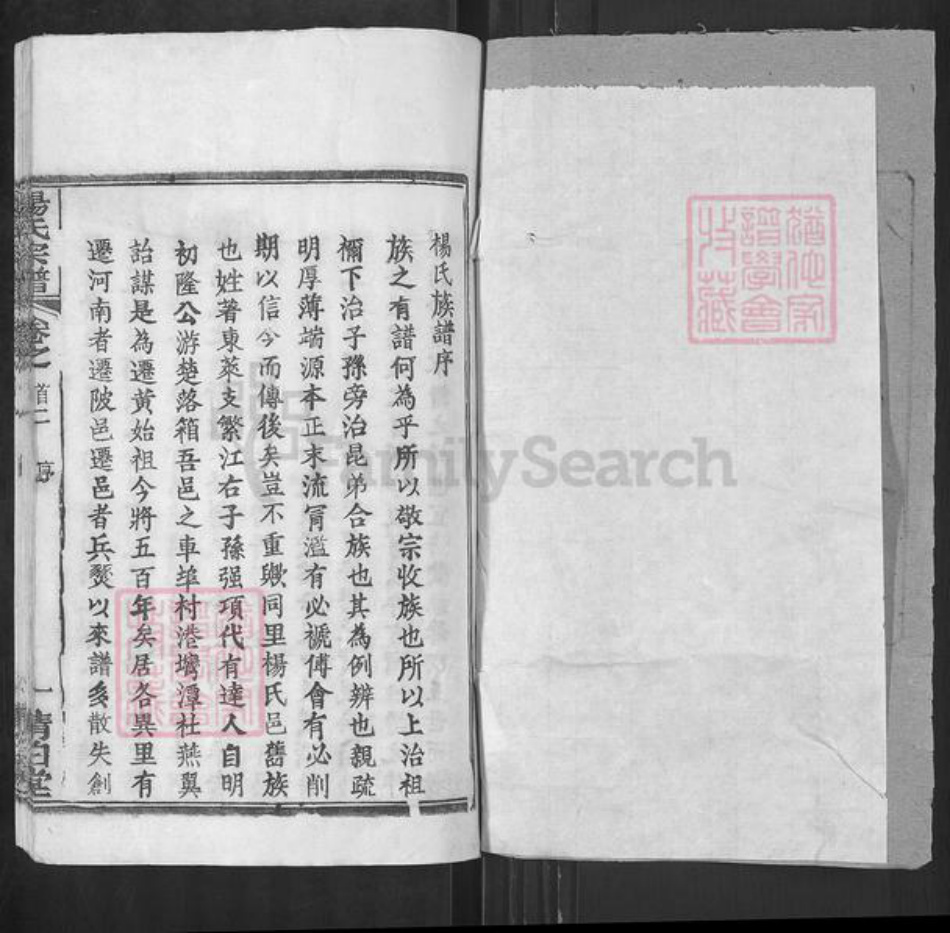 楊氏族譜序
族之有譜何為乎所以敬宗收族也所以上治祖
禰下治子孫旁治昆弟合族也其為例辨也親疏
明厚薄端源本正末流冐濫有必褫傅會有必削
期以信今而傳後矣豈不重歟同里楊氏邑舊族
也姓著東萊支繁江右子孫强項代有達人自明
初隆公游楚落箱吾邑之車埠村港塆潭社燕翼
詒謀是為遷黃始祖今將五百年矣居各異里有
遷河南者遷陂邑遷邑者兵燹以來譜多散失創
楊氏宗譜
卷之首二
序
一
清白堂
譜學會
收藏
FamilySearch